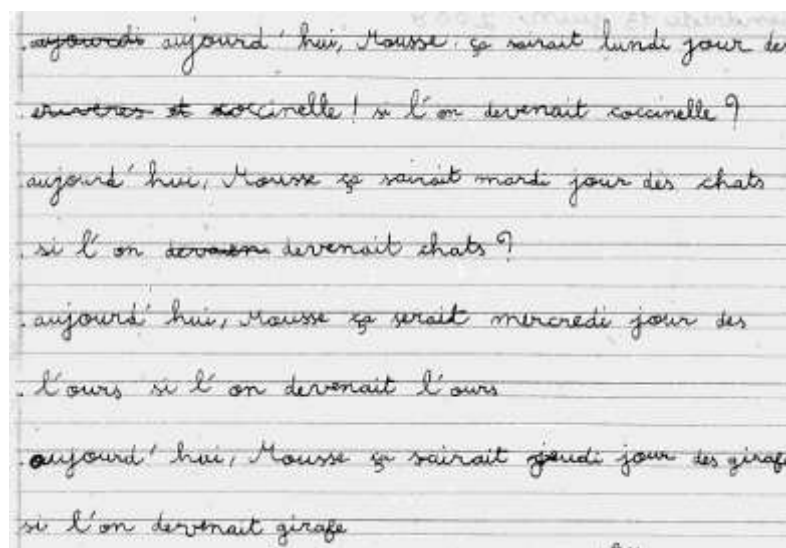 aujourd' hui, Mousse, ça sairait lundi jour des
coccinelle ! si l'on devenait coccinelle ?
aujourd' hui, Mousse ça sairait mardi jour des chats
si l'on devenait chats ?
aujourd' hui, Mousse ça serait mercredi jour des
l'ours si l'on devenait l'ours
aujourd' hui, Mousse ça sairait jeudi jour des girafe
si l'on devenait girafe